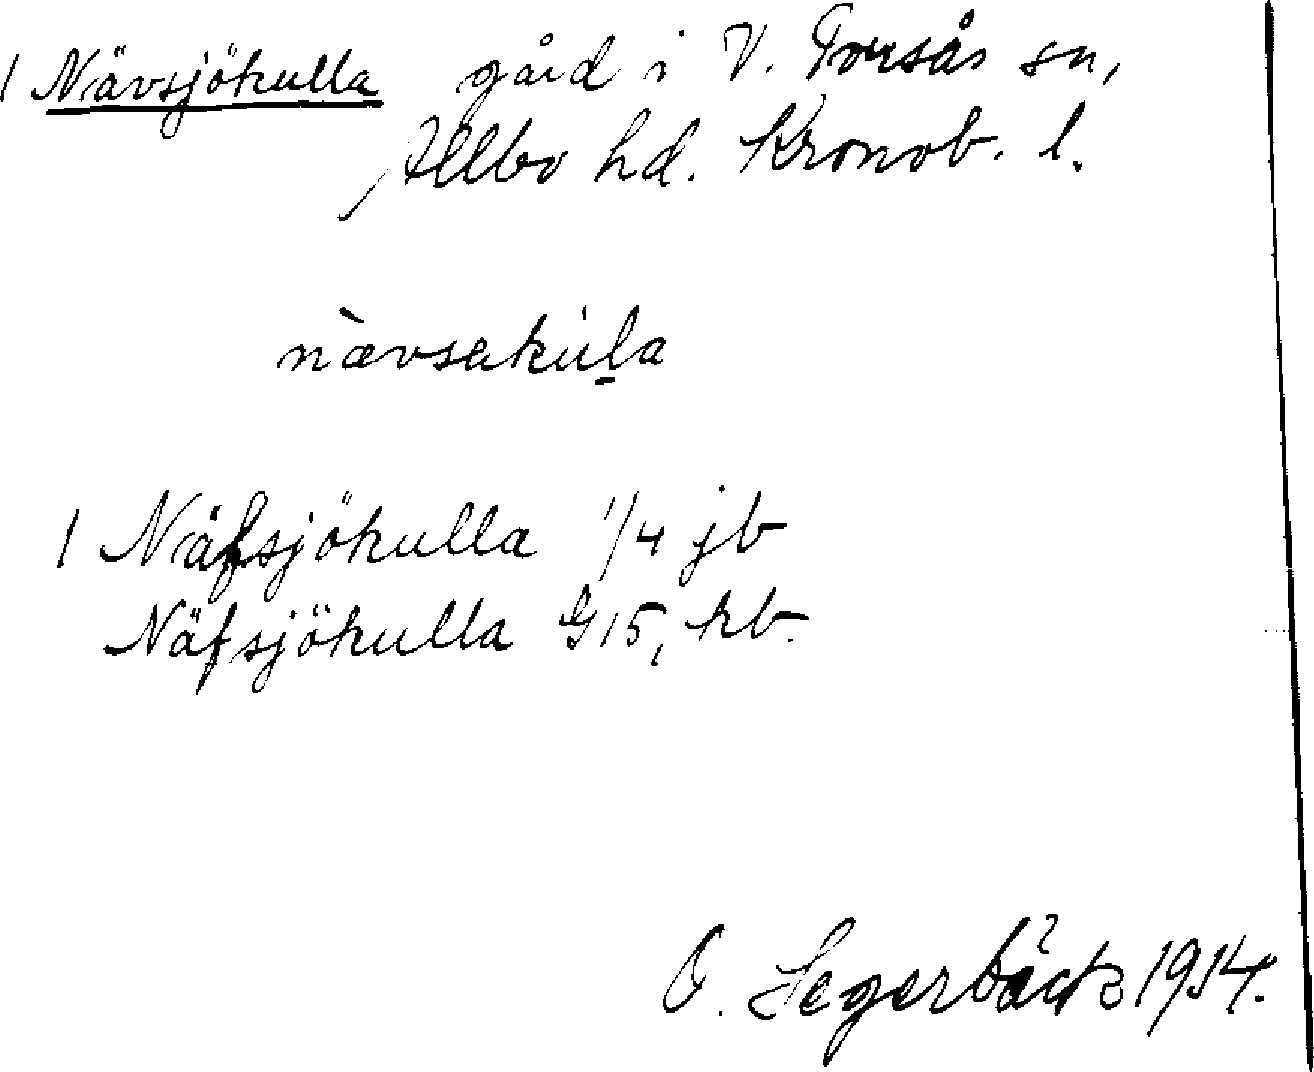 1 Nävsjökulla gård i V. Torsås sn,
Allbo hd. Kronob. l.
nævsakula
1 Näfsjökulla 1/4 jb
Näfsjökulla G15, kb.
O. Segerbäck 1914.